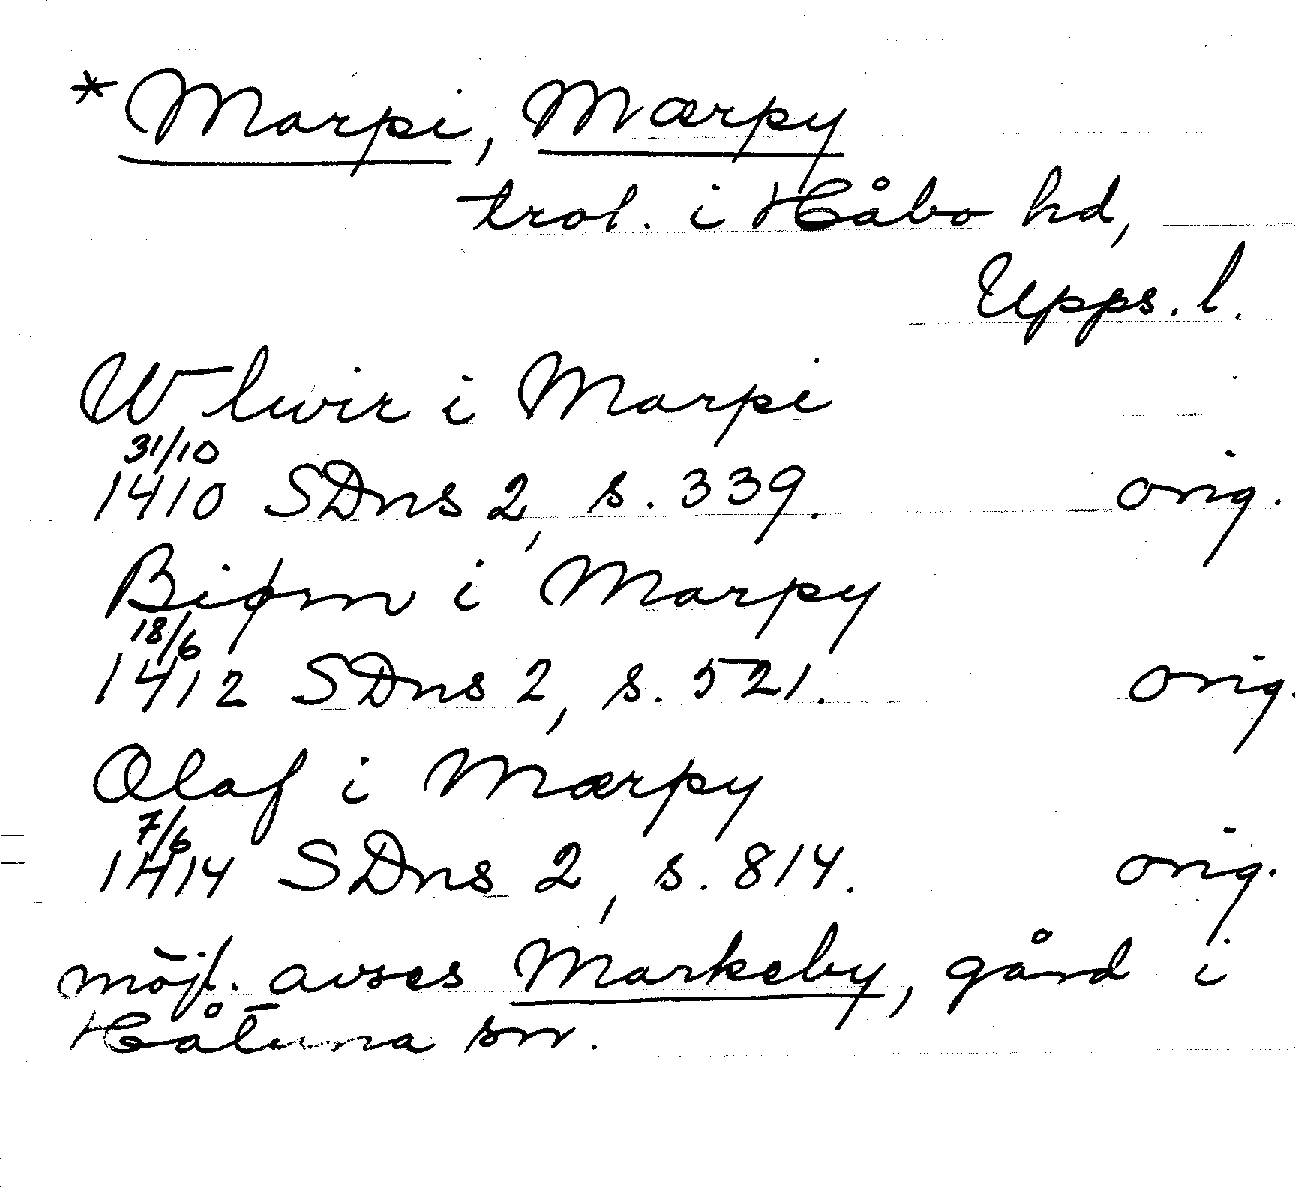 *Marpi, Mærpy
trol. i Håbo hd,
Upps. l.
Wlwir i Marpi
31/10
1410 SDns 2, s. 339. orig.
Biørn i Marpy
18/6
1412 SDns 2, s. 521. orig.
Olaf i Mærpy
7/6
1414 SDns 2, s. 814. orig.
möjl. avses Markeby, gård i
Håtuna sn.